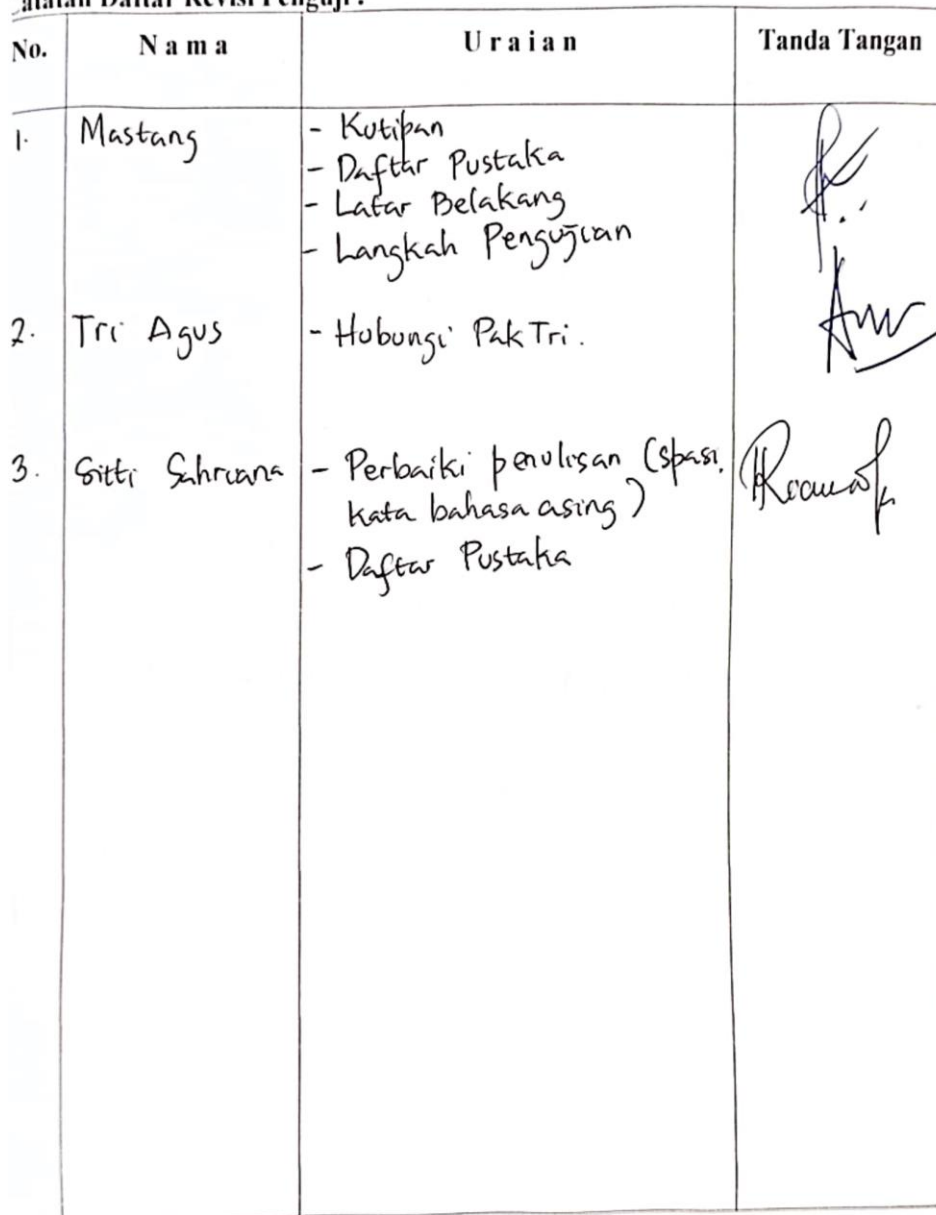 Catatan Daftar Revisi Penguji :
No. Nama Uraian Tanda Tangan
1. Mastang - Kutipan
- Daftar Pustaka
- Latar Belakang
- Langkah Pengujian
2. Tri Agus - Hubungi Pak Tri.
3. Sitti Sahriana - Perbaiki penulisan (spasi,
kata bahasa asing)
- Daftar Pustaka